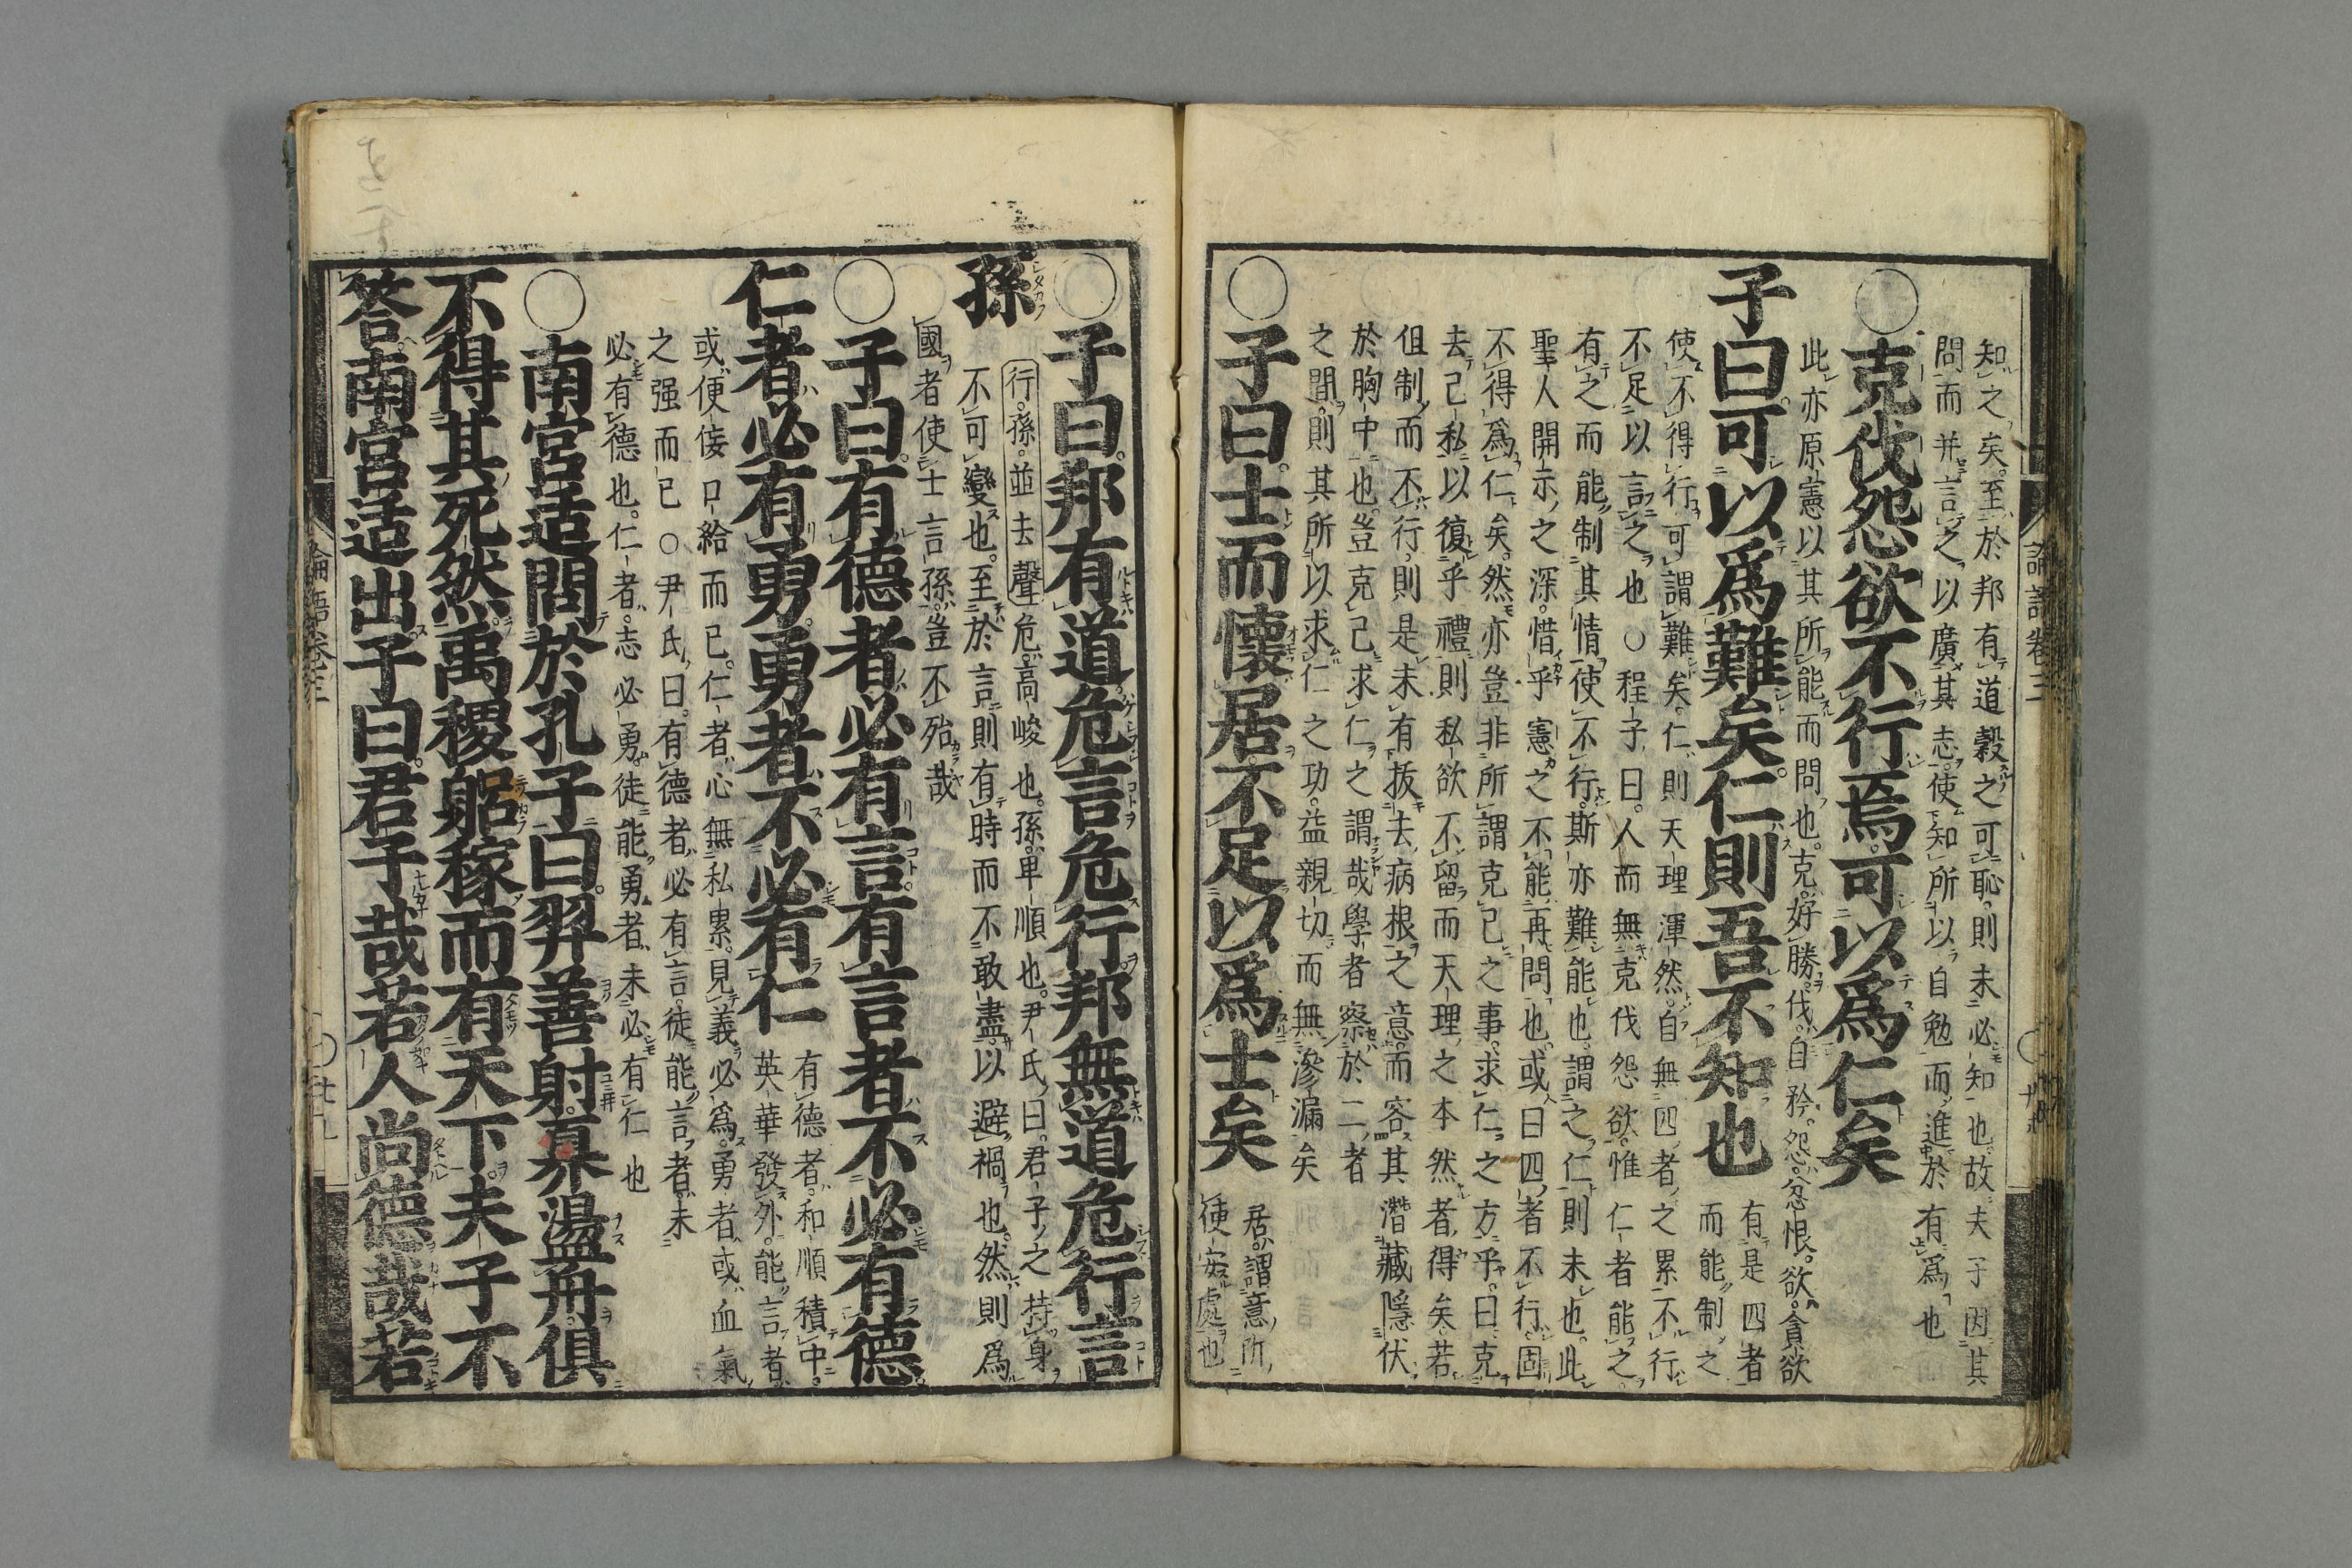 知之矣至於邦有道穀之可恥則未必知也故夫子因其
問而并言之以廣其志使知所以自勉而進於有爲也
○克伐怨欲不行焉可以爲仁矣
此亦原憲以其所能而問也克好勝伐自矜怨忿恨欲貪欲
子曰可以爲難矣仁則吾不知也
有是四者
而能制之
使不得行可謂難矣仁則天理渾然自無四者之累不行
不足以言之也○程子曰人而無克伐怨欲惟仁者能之
有之而能制其情使不行斯亦難能也謂之仁則未也此
聖人開示之深惜乎憲之不能再問也或曰四者不行固
不得爲仁矣然亦豈非所謂克己之事求仁之方乎曰克
去己私以復乎禮則私欲不留而天理之本然者得矣若
但制而不行則是未有抜去病根之意而容其潛藏隱伏
於胸中也豈克己求仁之謂哉學者察於二者
之間則其所以求仁之功益親切而無滲漏矣
○子曰士而懷居不足以爲士矣
居謂意所
便安處也
○子曰邦有道危言危行邦無道危行言
孫
行孫並去聲危高峻也孫卑順也尹氏曰君子之持身
不可變也至於言則有時而不敢盡以避禍也然則爲
國者使士言孫豈不殆哉
○子曰有德者必有言有言者不必有德
仁者必有勇勇者不必有仁
有德者和順積中
英華發外能言者
或便佞口給而已仁者心無私累見義必爲勇者或血氣
之强而已○尹氏曰有德者必有言徒能言者未
必有德也仁者志必勇徒能勇者未必有仁也
○南宮适問於孔子曰羿善射奡盪舟俱
不得其死然禹稷躬稼而有天下夫子不
答南宮适出子曰君子哉若人尚德哉若
論語卷三